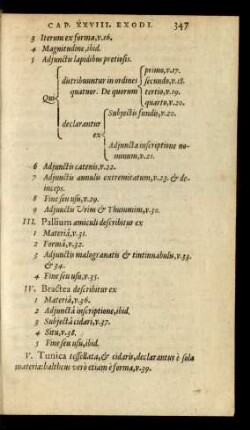 CAP. XXVIII. EXODI. 347
3 Iterum ex forma, v.16.
4 Magnitudine, ibid.
5 Adjunctis lapidibus pretiosis.
Qui
distribuuntur in ordines quatuor. De quorum
primo, v.17.
secundo, v.18.
tertio, v.19.
quarto, v.20.
declarantur ex
Subjectis fundis, v.20.
Adjuncta inscriptione nominum, v.21.
6 Adjunctis catenis, v.22.
7 Adjunctis annulis extremitatum, v.23. & deinceps.
8 Fine seu usu, v.29.
9 Adjunctis Urim & Thummim, v.30.
III. Pallium amiculi describitur ex
1 Materiâ, v.31.
2 Formâ, v.32.
3 Adjunctis malogranatis & tintinnabulis, v.33.
& 34.
4 Fine seu usu, v.35.
IV. Bractea describitur ex
1 Materiâ, v.36.
2 Adjunctâ inscriptione, ibid.
3 Subjectâ cidari, v.37.
4 Situ, v.38.
5 Fine seu usu, ibid.
V. Tunica tessellata, & cidaris, declarantur è sola
materia: baltheus verò etiam è forma, v.39.